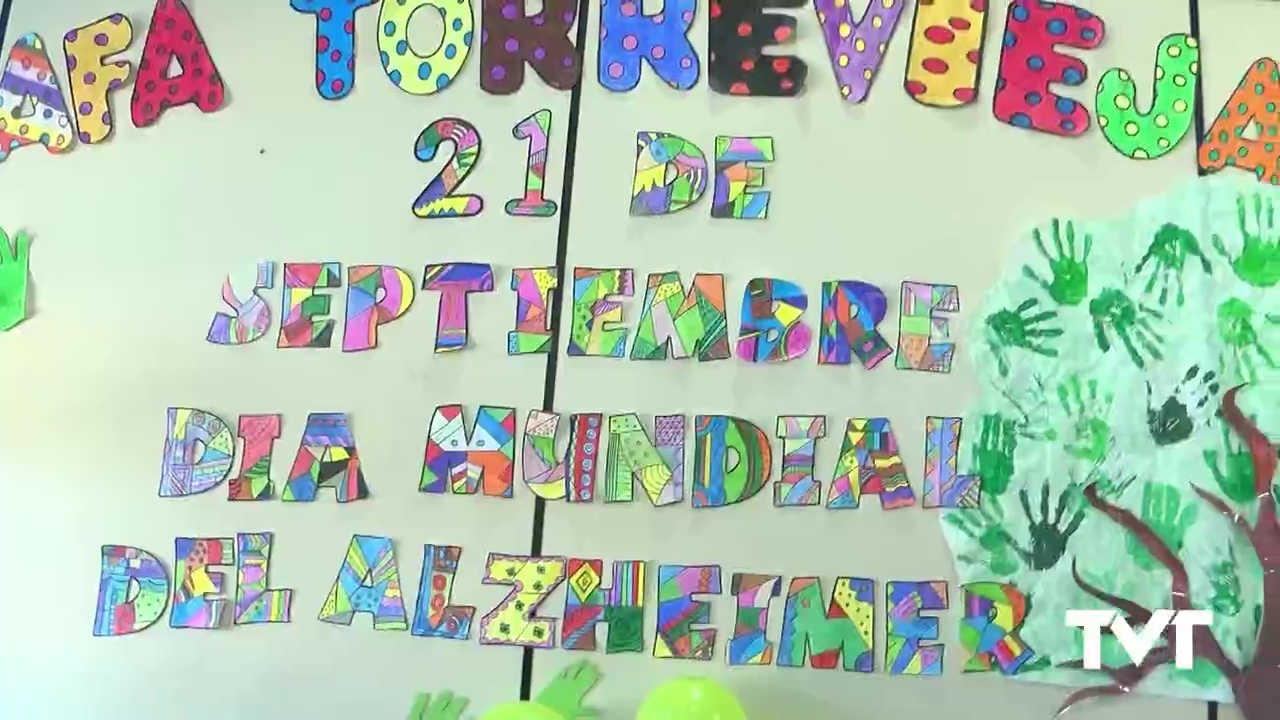 AFA TORREVIEJA
21 DE
SEPTIEMBRE
DIA MUNDIAL
DEL ALZHEIMER
TVT